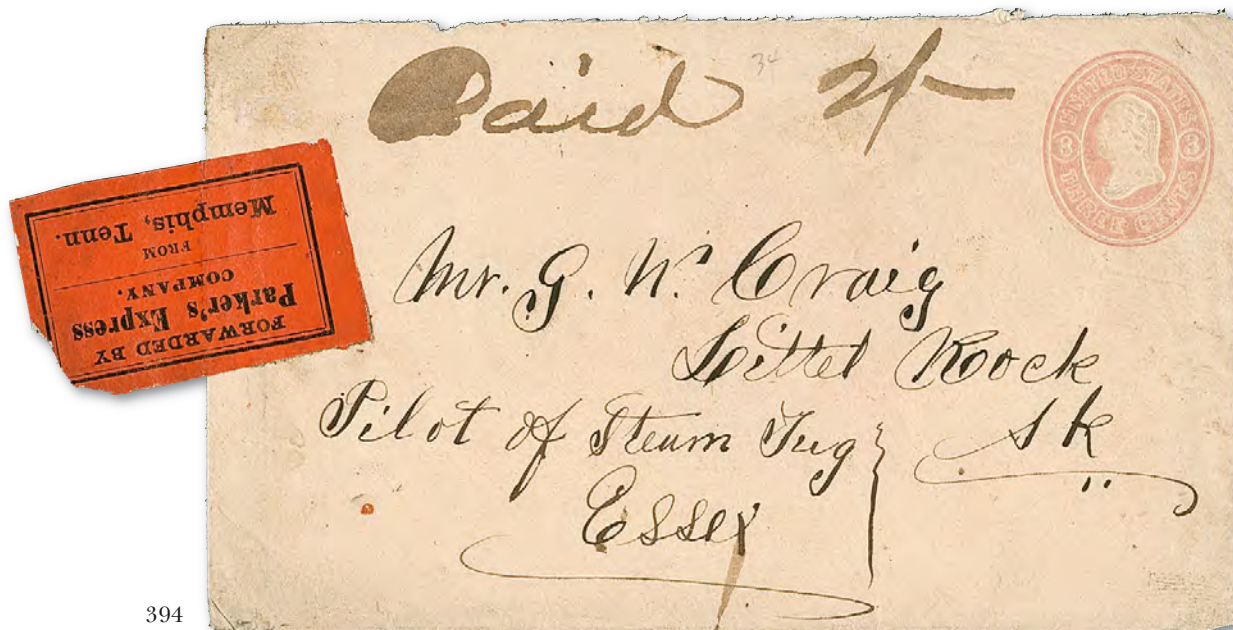 Paid 2/-
34
UNITED STATES
3 3
THREE CENTS
FORWARDED BY
Parker's Express
COMPANY.
FROM
Memphis, Tenn.
Mr. G. W. Craig
Littel Rock
Ak
Pilot of Steam Tug
Essex
394